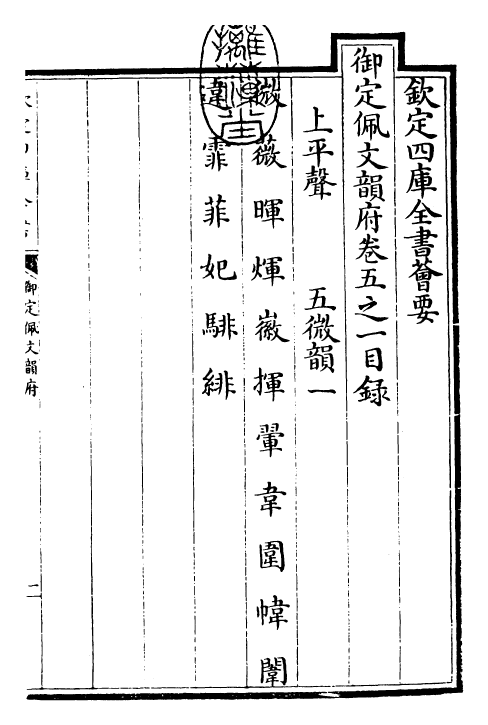 欽定四庫全書薈要
御定佩文韻府卷五之一目録
上平聲　五微韻一
微薇暉煇徽揮翬韋圍幃闈
違霏菲妃騑緋
御定佩文韻府